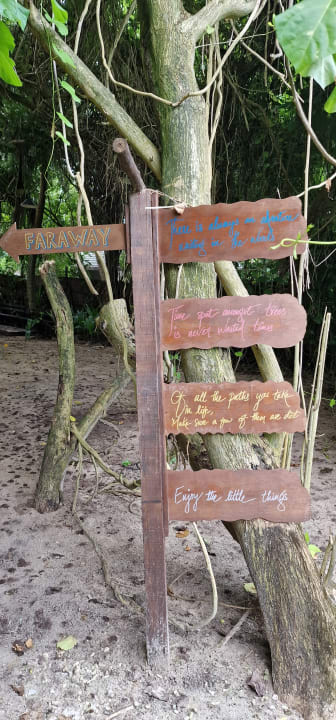 FARAWAY
There is always an adventure
waiting in the woods
Time spent amongst trees
is never wasted time
Of all the paths you take
in life,
Make sure a few of them are dirt
Enjoy the little things